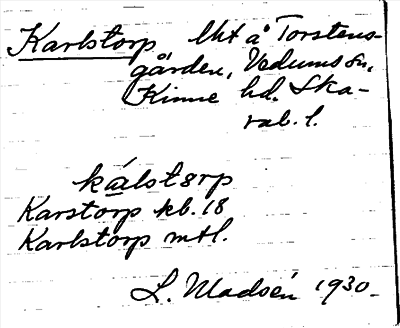 Karlstorp lht å Torstens-
gården, Vedums sn,
Kinne hd. Ska-
rab. l.
kálstørp
Karstorp kb. 18
Karlstorp mtl.
L. Madsén 1930.